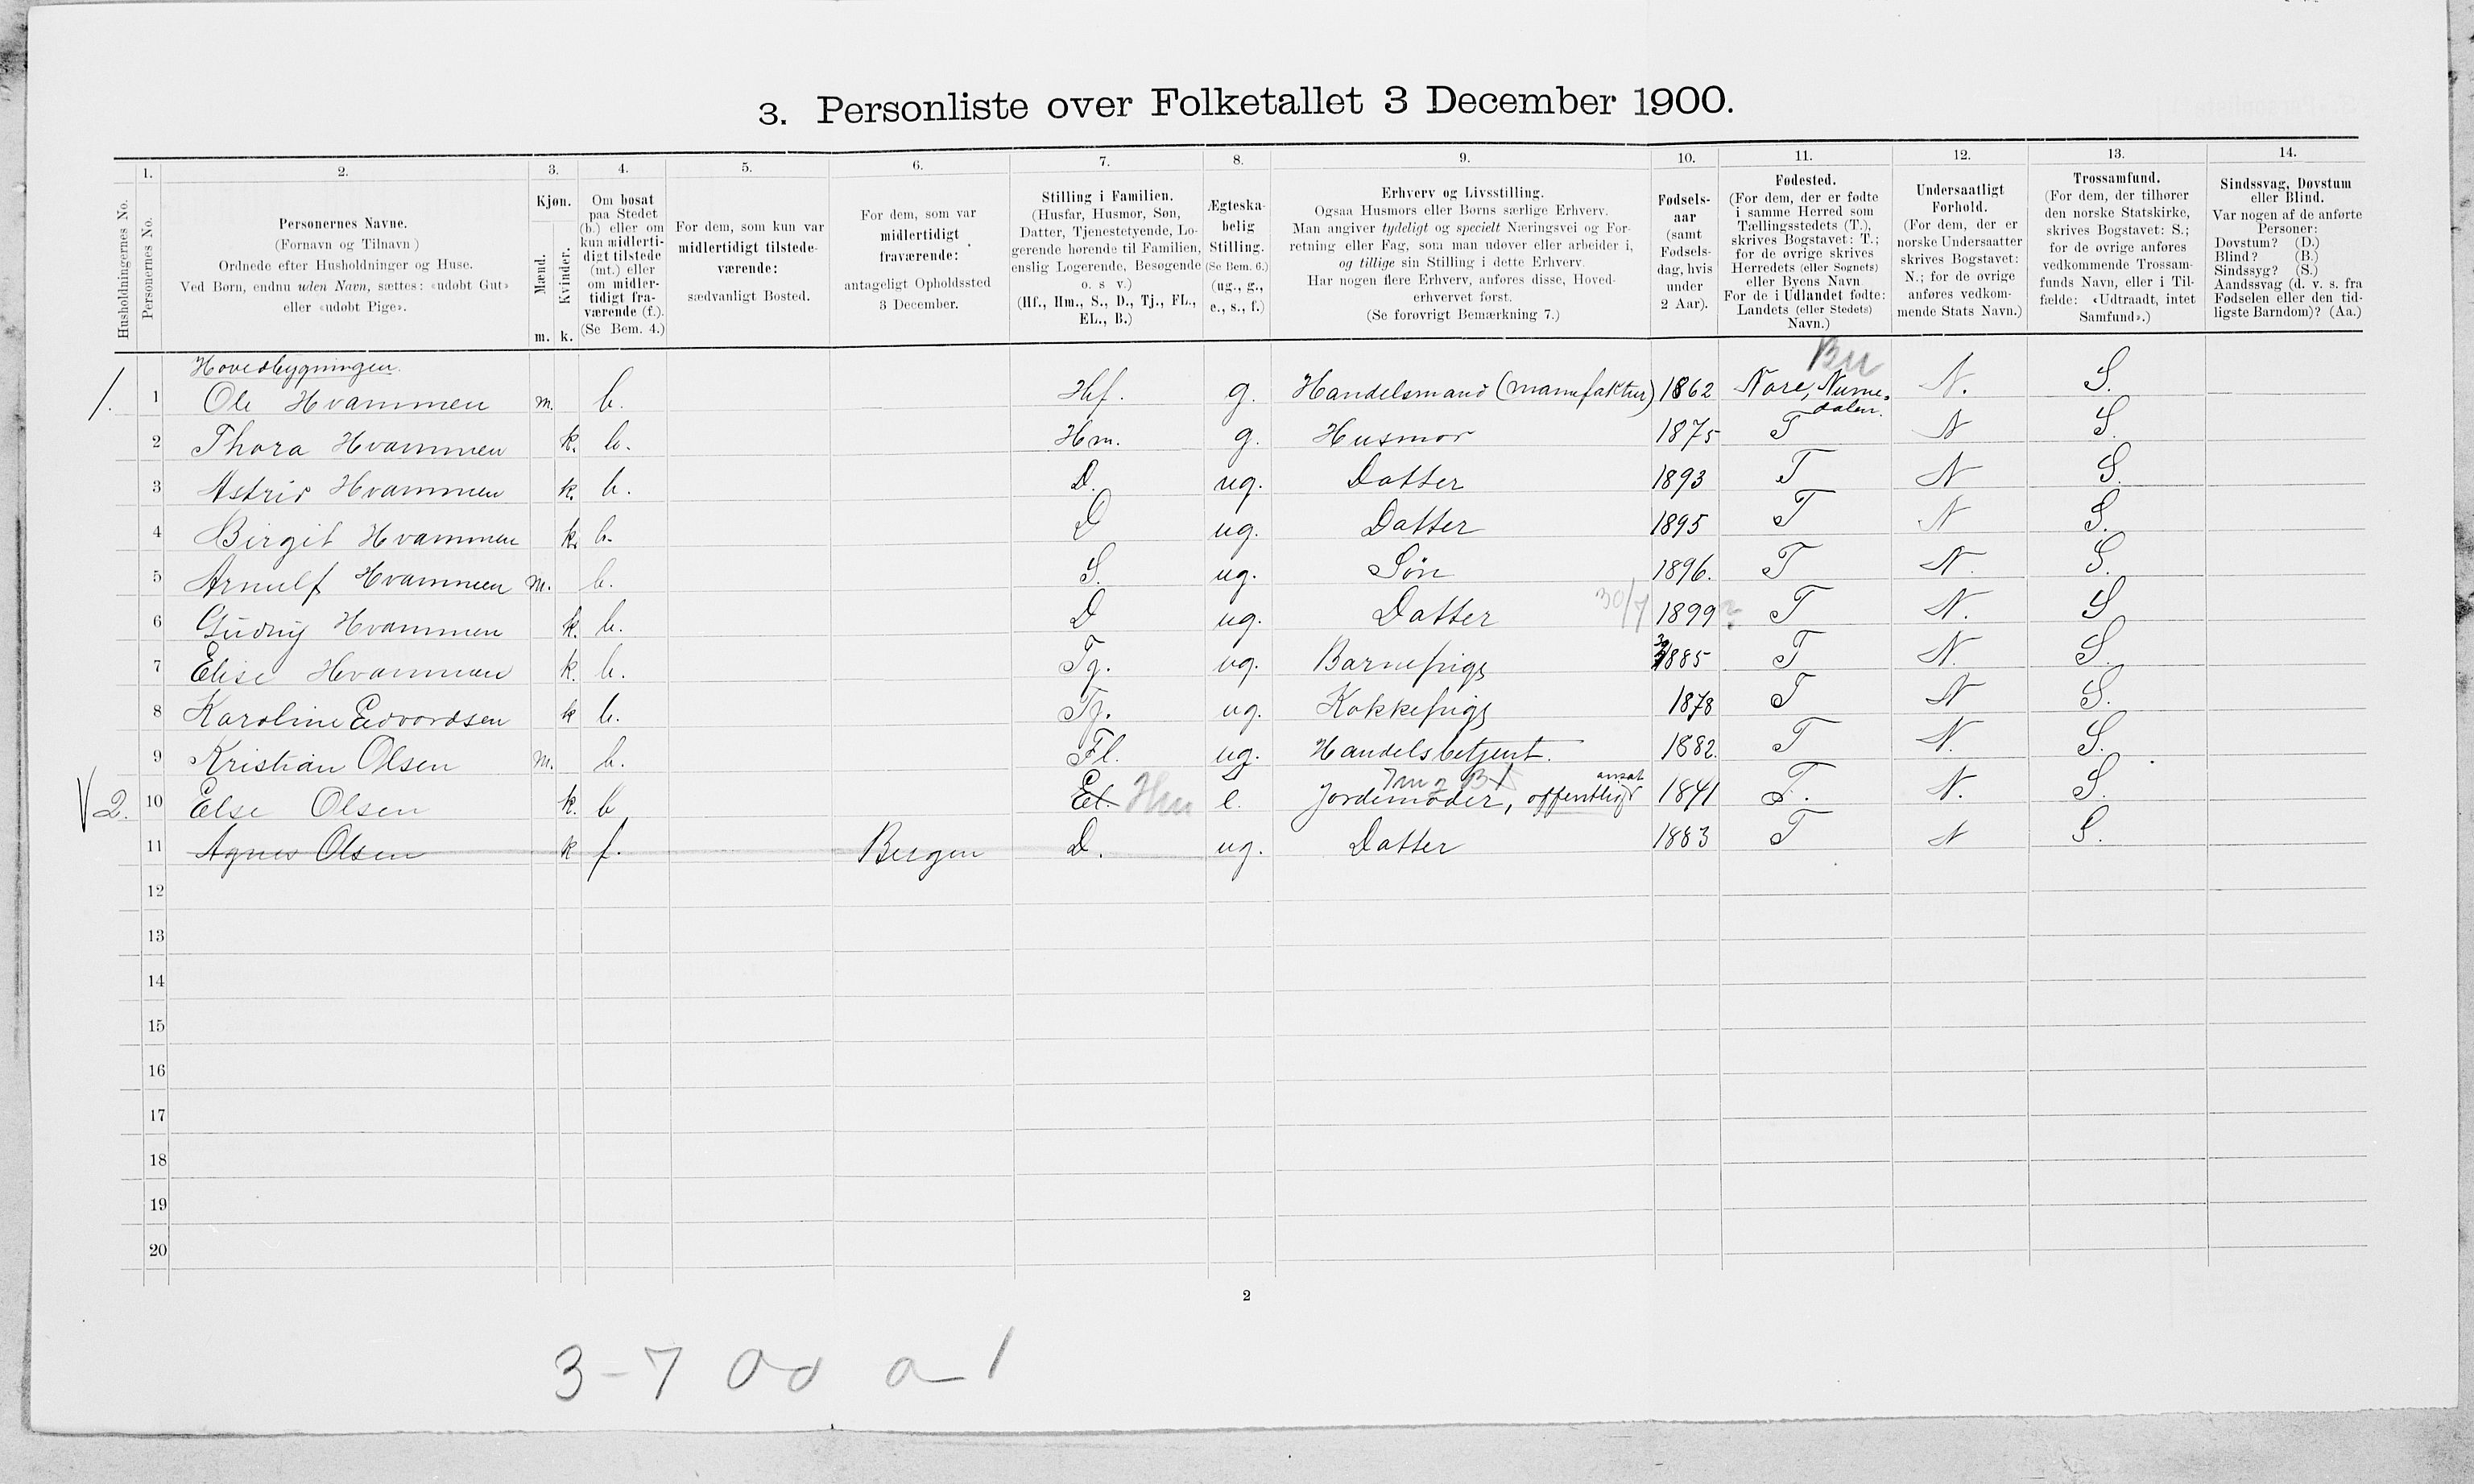 3. Personliste over Folketallet 3 December 1900.
1. 2. 3. 4. 5. 6. 7. 8. 9. 10. 11. 12. 13. 14.
Husholdningernes No.
Personernes No.
Personernes Navne.
(Fornavn og Tilnavn)
Ordnede efter Husholdninger og Huse.
Ved Børn, endnu uden Navn, sættes: «udøbt Gut»
eller «udøbt Pige».
Kjøn.
Mænd.
Kvinder.
m. k.
Om bosat
paa Stedet
(b.) eller om
kun midlerti-
digt tilstede
(mt.) eller
om midler-
tidigt fra-
værende (f.).
(Se Bem. 4.)
For dem, som kun var
midlertidigt tilstede-
værende:
sædvanligt Bosted.
For dem, som var
midlertidigt
fraværende:
antageligt Opholdssted
3 December.
Stilling i Familien.
(Husfar, Husmor, Søn,
Datter, Tjenestetyende, Lo-
gerende hørende til Familien,
enslig Logerende, Besøgende
o. s v.)
(Hf., Hm., S., D., Tj., FL.,
EL., B.)
Ægteska-
belig
Stilling.
(Se Bem. 6.)
(ug., g.,
e., s., f.)
Erhverv og Livsstilling.
Ogsaa Husmors eller Børns særlige Erhverv.
Man angiver tydeligt og specielt Næringsvei og For-
retning eller Fag, som man udøver eller arbeider i,
og tillige sin Stilling i dette Erhverv.
Har nogen flere Erhverv, anføres disse, Hoved-
erhvervet først.
(Se forøvrigt Bemærkning 7.)
Fødsels-
aar
(samt
Fødsels-
dag, hvis
under
2 Aar).
Fødested.
(For dem, der er fødte
i samme Herred som
Tællingsstedets (T.),
skrives Bogstavet: T.;
for de øvrige skrives
Herredets (eller Sognets)
eller Byens Navn
For de i Udlandet fødte:
Landets (eller Stedets)
Navn.)
Undersaatligt
Forhold.
(For dem, der er
norske Undersaatter
skrives Bogstavet:
N.; for de øvrige
anføres vedkom-
mende Stats Navn.)
Trossamfund.
(For dem, der tilhører
den norske Statskirke,
skrives Bogstavet: S.;
for de øvrige anføres
vedkommende Trossam-
funds Navn, eller i Til-
fælde: «Udtraadt, intet
Samfund».)
Sindssvag, Døvstum
eller Blind.
Var nogen af de anførte
Personer:
Døvstum? (D.)
Blind? (B.)
Sindssyg? (S.)
Aandssvag (d. v. s. fra
Fødselen eller den tid-
ligste Barndom)? (Aa.)
Hovedbygningen.
Bu
1. 1 Ole Hvammen m. b. Hf. g. Handelsmand (manufaktur) 1862 Nore, Nume-
dalen. N. S.
2 Thora Hvammen k. b. Hm. g. Husmor 1875 T N S.
3 Astrid Hvammen k. b. D. ug. Datter 1893 T N S.
4 Birgit Hvammen k. b. D ug. Datter 1895 T N S.
5 Arnulf Hvammen m. b. S. ug. Søn 1896. T N. S.
6 Gudny Hvammen k. b. D ug. Datter 30/7 1899 ? T N. S
7 Elise Hvammen k. b. Tj. ug. Barnepige 1885 T N. S.
8 Karoline Edvardsen k b. Tj. ug. Kokkepige 1878 T N S.
9 Kristian Olsen m. b. Fl. ug. Handelsbetjent. 1882. T N. S.
2. 10 Else Olsen k. b El. Hm e. Jordemoder, offentligt ansat 1841 T. N. S.
11 Agnes Olsen k f. Bergen D. ug. Datter 1883 T N S.
12
13
14
15
16
17
18
19
20
2
3-7